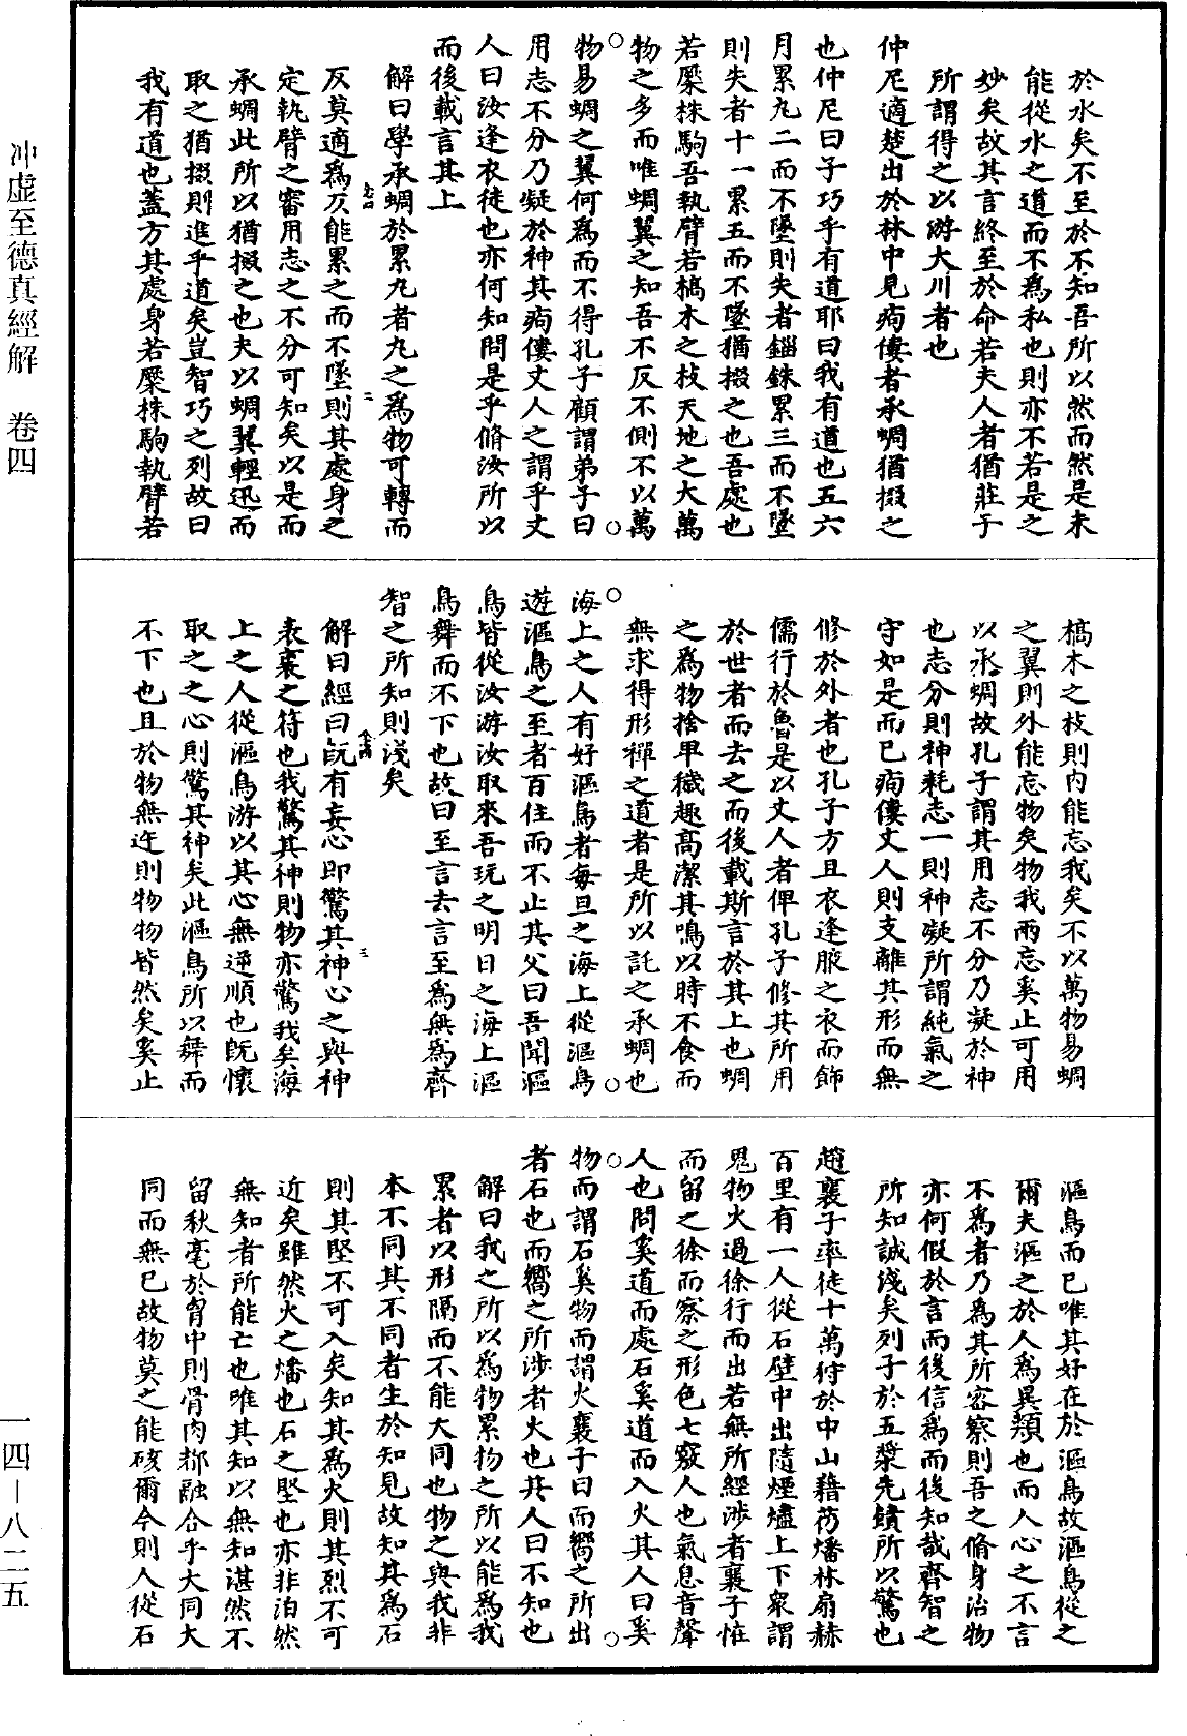 冲虛至德真經解　卷四
一四—八二五
於水矣不至於不知吾所以然而然是未
能從水之道而不爲私也則亦不若是之
妙矣故其言終至於命若夫人者猶莊子
所謂得之以游大川者也
仲尼適楚出於林中見痀僂者承蜩猶掇之
也仲尼曰子巧乎有道耶曰我有道也五六
月累九二而不墜則失者錙銖累三而不墜
則失者十一累五而不墜猶掇之也吾處也
若橜株駒吾執臂若槁木之枝天地之大萬
物之多而唯蜩翼之知吾不反不側不以萬
物易蜩之翼何爲而不得孔子顧謂弟子曰
用志不分乃凝於神其痀僂丈人之謂乎丈
人曰汝逢衣徒也亦何知問是乎脩汝所以
而後載言其上
解曰學承蜩於累九者九之爲物可轉而
反莫適爲㳄能累之而不墜則其處身之
定執臂之審用志之不分可知矣以是而
承蜩此所以猶掇之也夫以蜩翼輕迅而
取之猶掇則進乎道矣豈智巧之列故曰
我有道也蓋方其處身若橜株駒執臂若
二
槁木之枝則内能忘我矣不以萬物易蜩
之翼則外能忘物矣物我兩忘奚止可用
以承蜩故孔子謂其用志不分乃凝於神
也志分則神耗志一則神凝所謂純氣之
守如是而已痀僂丈人則支離其形而無
修於外者也孔子方且衣逢腋之衣而飾
儒行於魯是以丈人者俾孔子修其所用
於世者而去之而後載斯言於其上也蜩
之爲物捨卑穢趣高潔其鳴以時不食而
無求得形禪之道者是所以託之承蜩也
海上之人有好漚鳥者每旦之海上從漚鳥
遊漚鳥之至者百住而不止其父曰吾聞漚
鳥皆從汝游汝取來吾玩之明日之海上漚
鳥舞而不下也故曰至言去言至爲無爲齊
智之所知則淺矣
解曰經曰旣有妄心即驚其神心之與神
表裏之符也我驚其神則物亦驚我矣海
上之人從漚鳥游以其心無逆順也旣懷
取之之心則驚其神矣此漚鳥所以舞而
不下也且於物無迕則物物皆然矣奚止
三
漚鳥而已唯其好在於漚鳥故漚鳥從之
爾夫漚之於人爲異類也而人心之不言
不爲者乃爲其所密察則吾之脩身治物
亦何假於言而後信爲而後知哉齊智之
所知誠淺矣列子於五漿先饋所以驚也
趙襄子率徒十萬狩於中山藉芿燔林扇赫
百里有一人從石壁中出隨煙燼上下衆謂
鬼物火過徐行而出若無所經涉者襄子怪
而留之徐而察之形色七竅人也氣息音聲
人也問奚道而處石奚道而入火其人曰奚
物而謂石奚物而謂火襄子曰而嚮之所出
者石也而嚮之所涉者火也其人曰不知也
解曰我之所以爲物累物之所以能爲我
累者以形隔而不能大同也物之與我非
本不同其不同者生於知見故知其爲石
則其堅不可入矣知其爲火則其烈不可
近矣雖然火之燔也石之堅也亦非泊然
無知者所能亡也唯其知以無知湛然不
留秋毫於胷中則骨肉都融合乎大同大
同而無已故物莫之能硋爾今則人從石